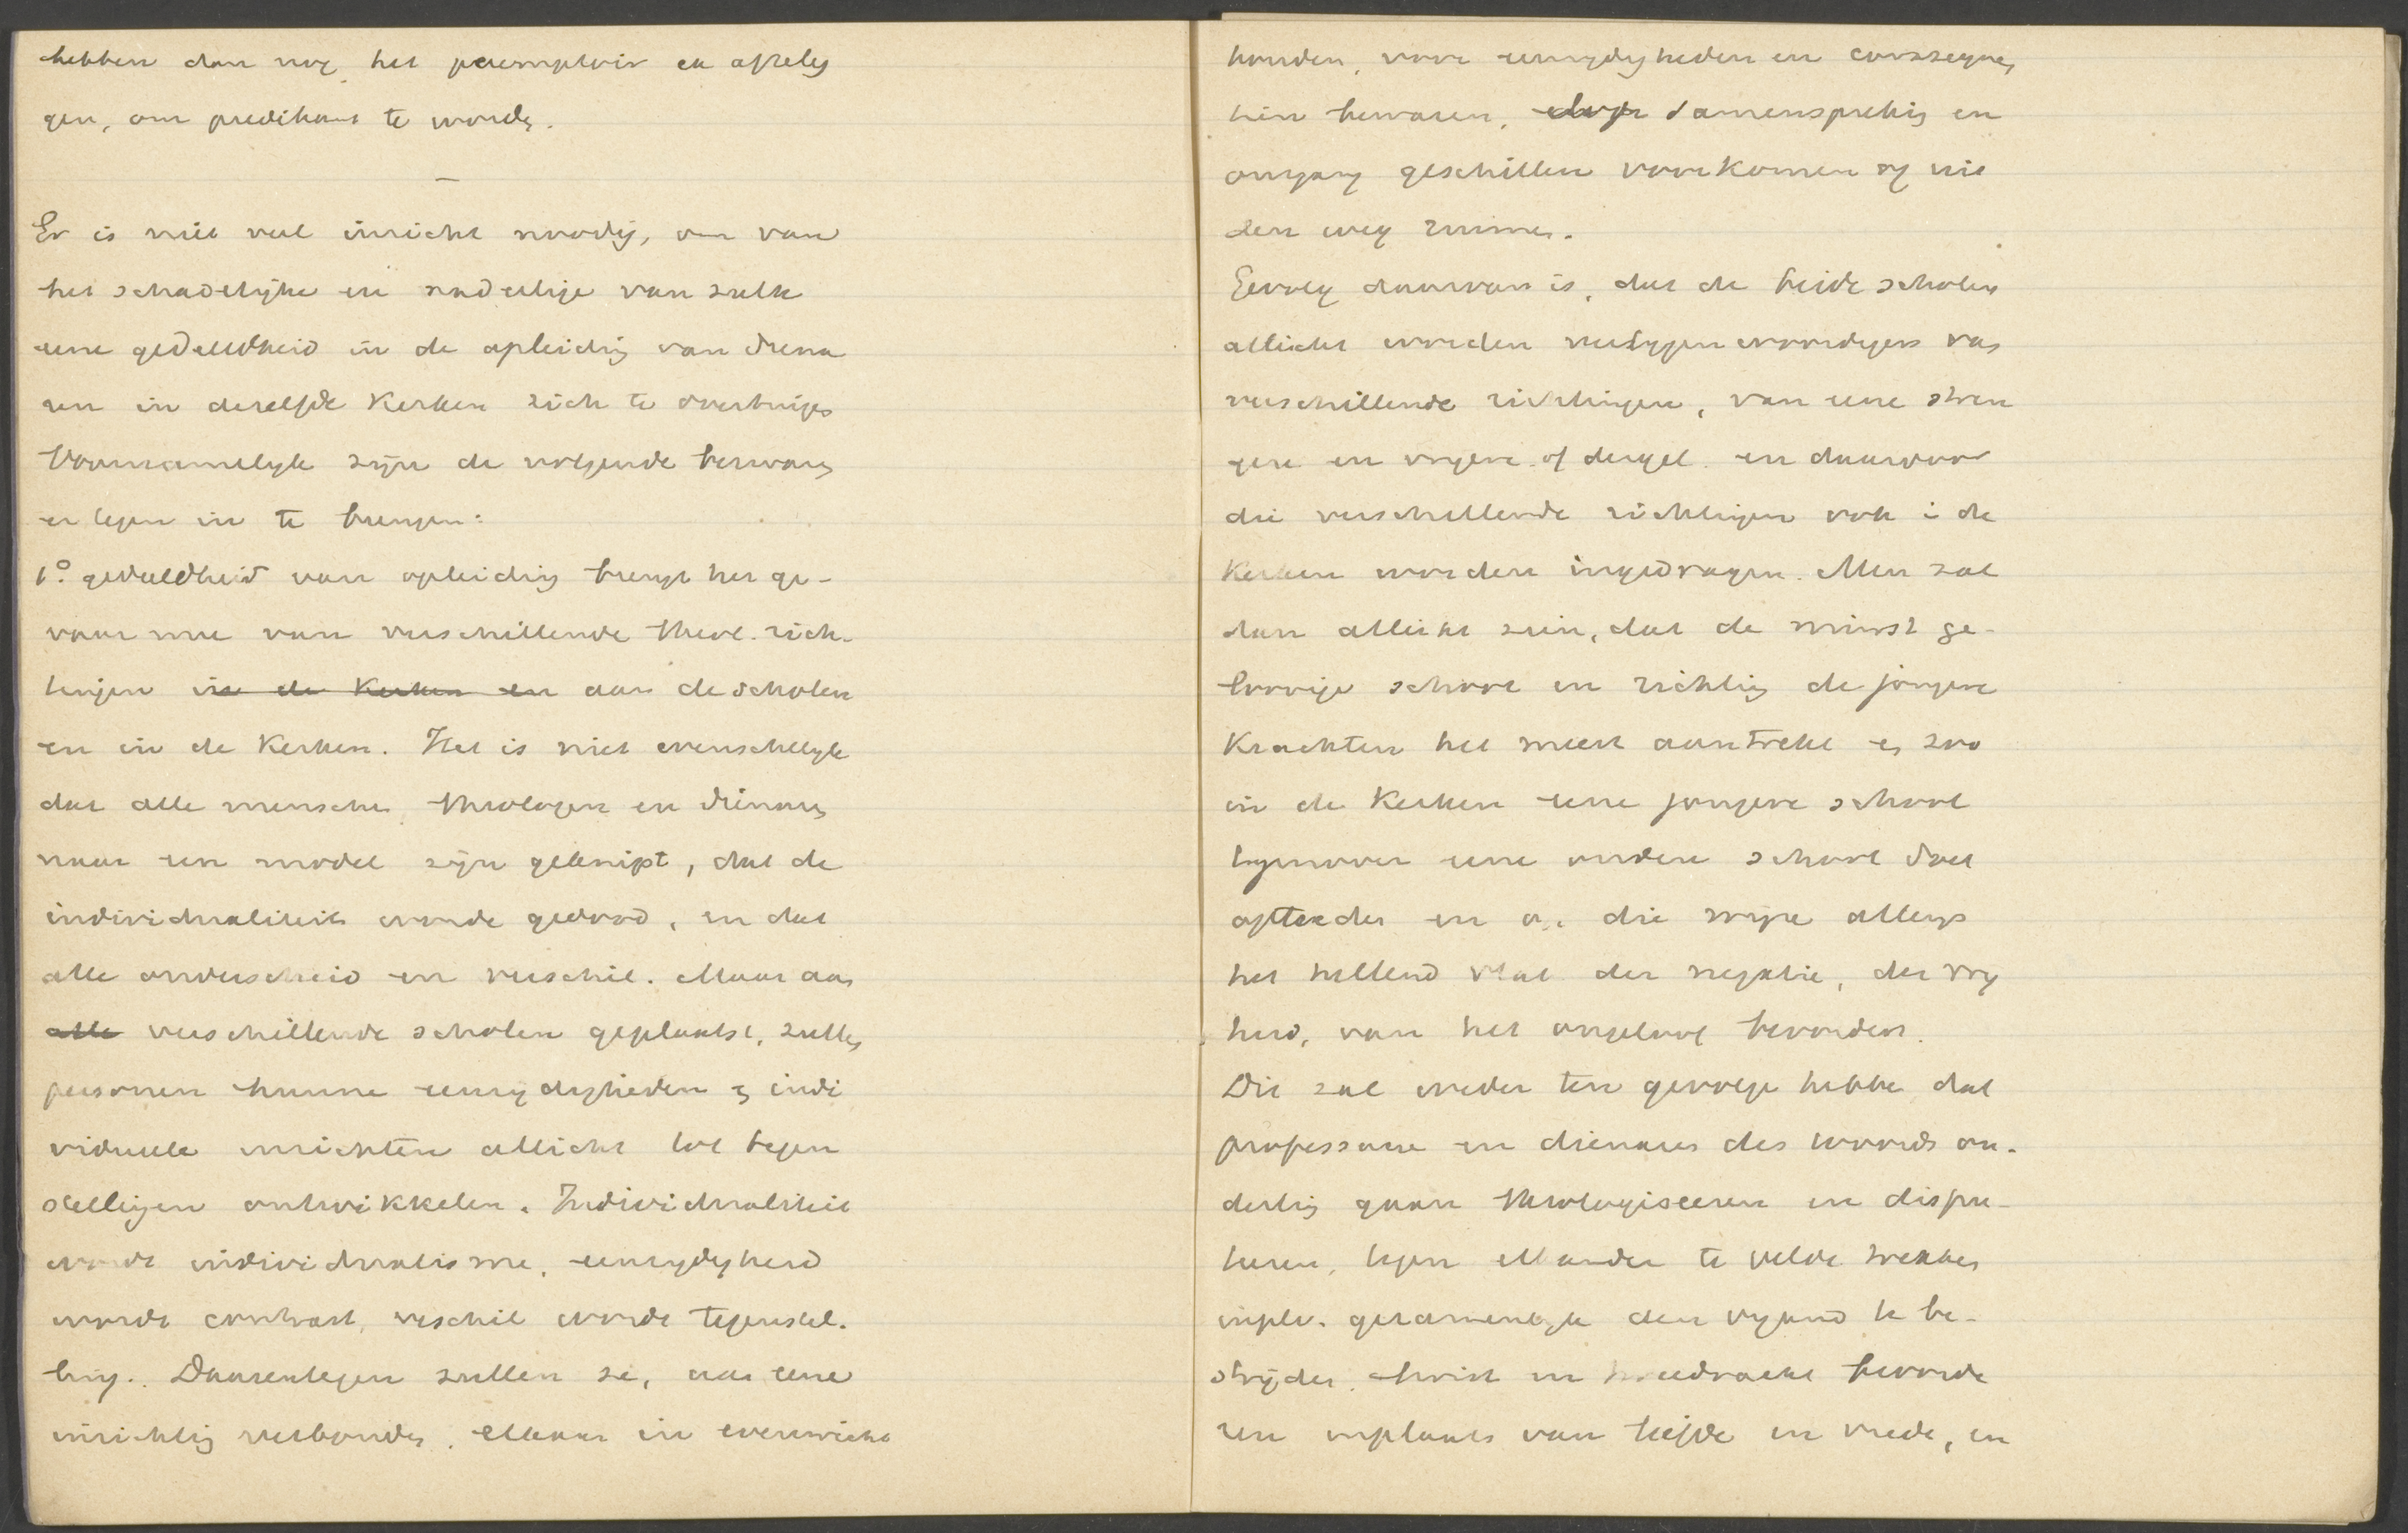 hebben dan nog het peremptoir en afleg
gen, om predikant te worden.
—
Er is niet veel inzicht noodig, om van
het schadelijke en nadeelige van zulk
eene gedeeldheid in de opleiding van diena
ren in dezelfde Kerken zich te overtuigen
Voornamelijk zijn de volgende bezwaren
er tegen in te brengen:
1o. gedeeldheid van opleiding brengt het ge-
vaar mee van verschillende theol. rich-
tingen in de Kerken en aan de scholen
en in de Kerken. Het is niet wenschelijk
dat alle menschen, theologen en dienaren
naar een model zijn geknipt, dat de
individualiteit worde gedood, en dat
alle onderscheid en verschil. Maar aan
alle verschillende scholen geplaatst, zullen
personen hunne eenzijdigheden en indi
vidueele inzichten allicht tot tegen
stellingen ontwikkelen. Individualiteit
wordt individualisme, eenzijdigheid
wordt contrast, verschil wordt tegenstel-
ling. Daarentegen zullen ze, aan eene
inrichting verbonden, elkaar in evenwicht
houden, voor eenzijdigheden en consequen
tien bewaren, door samenspreking en
omgang geschillen voorkomen of uit
den weg ruimen.
Gevolg daarvan is, dat de beide scholen
allicht worden vertegenwoordigers van
verschillende richtingen, van eene stren
gere en vrijere of dergel. en daardoor
die verschillende richtingen ook in de
Kerken worden ingedragen. Men zal
dan allicht zien, dat de minst ge-
loovige school en richting de jongere
Krachten het meest aantrekt en zoo
in de Kerken eene jongere school
tegenover eene oudere school doet
optreden en op die wijze allengs
het hellend vlak der negatie, der vrij
heid, van het ongeloof bevorderen.
Dit zal weder ten gevolge hebben dat
professoren en dienaren des woords on-
derling gaan theologiseeren en dispu-
teeren, tegen elkander te velde trekken
inpl. v. gezamenlijk den vijand te be-
strijden, twist en tweedracht bevorde
ren inplaats van liefde en vrede, en